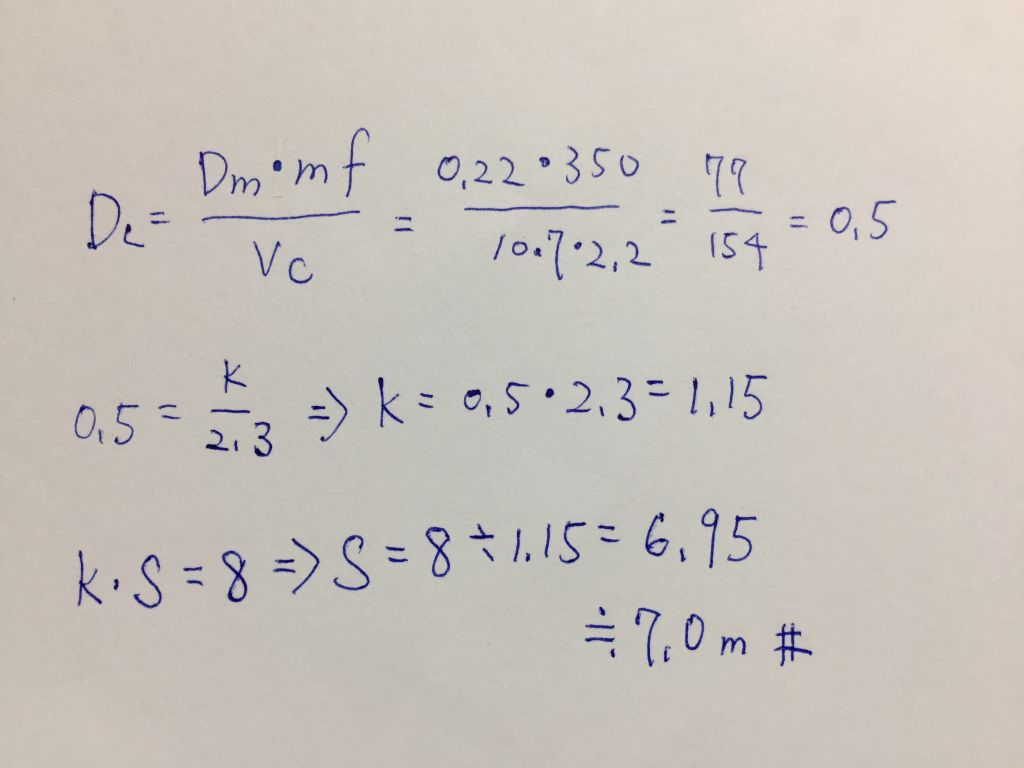 De = Dm・mf / Vc = 0.22・350 / 10・7・2.2 = 77 / 154 = 0.5
0.5 = k / 2.3 ⇒ k = 0.5・2.3 = 1.15
k・S = 8 ⇒ S = 8 ÷ 1.15 = 6.95
≒ 7.0 m #